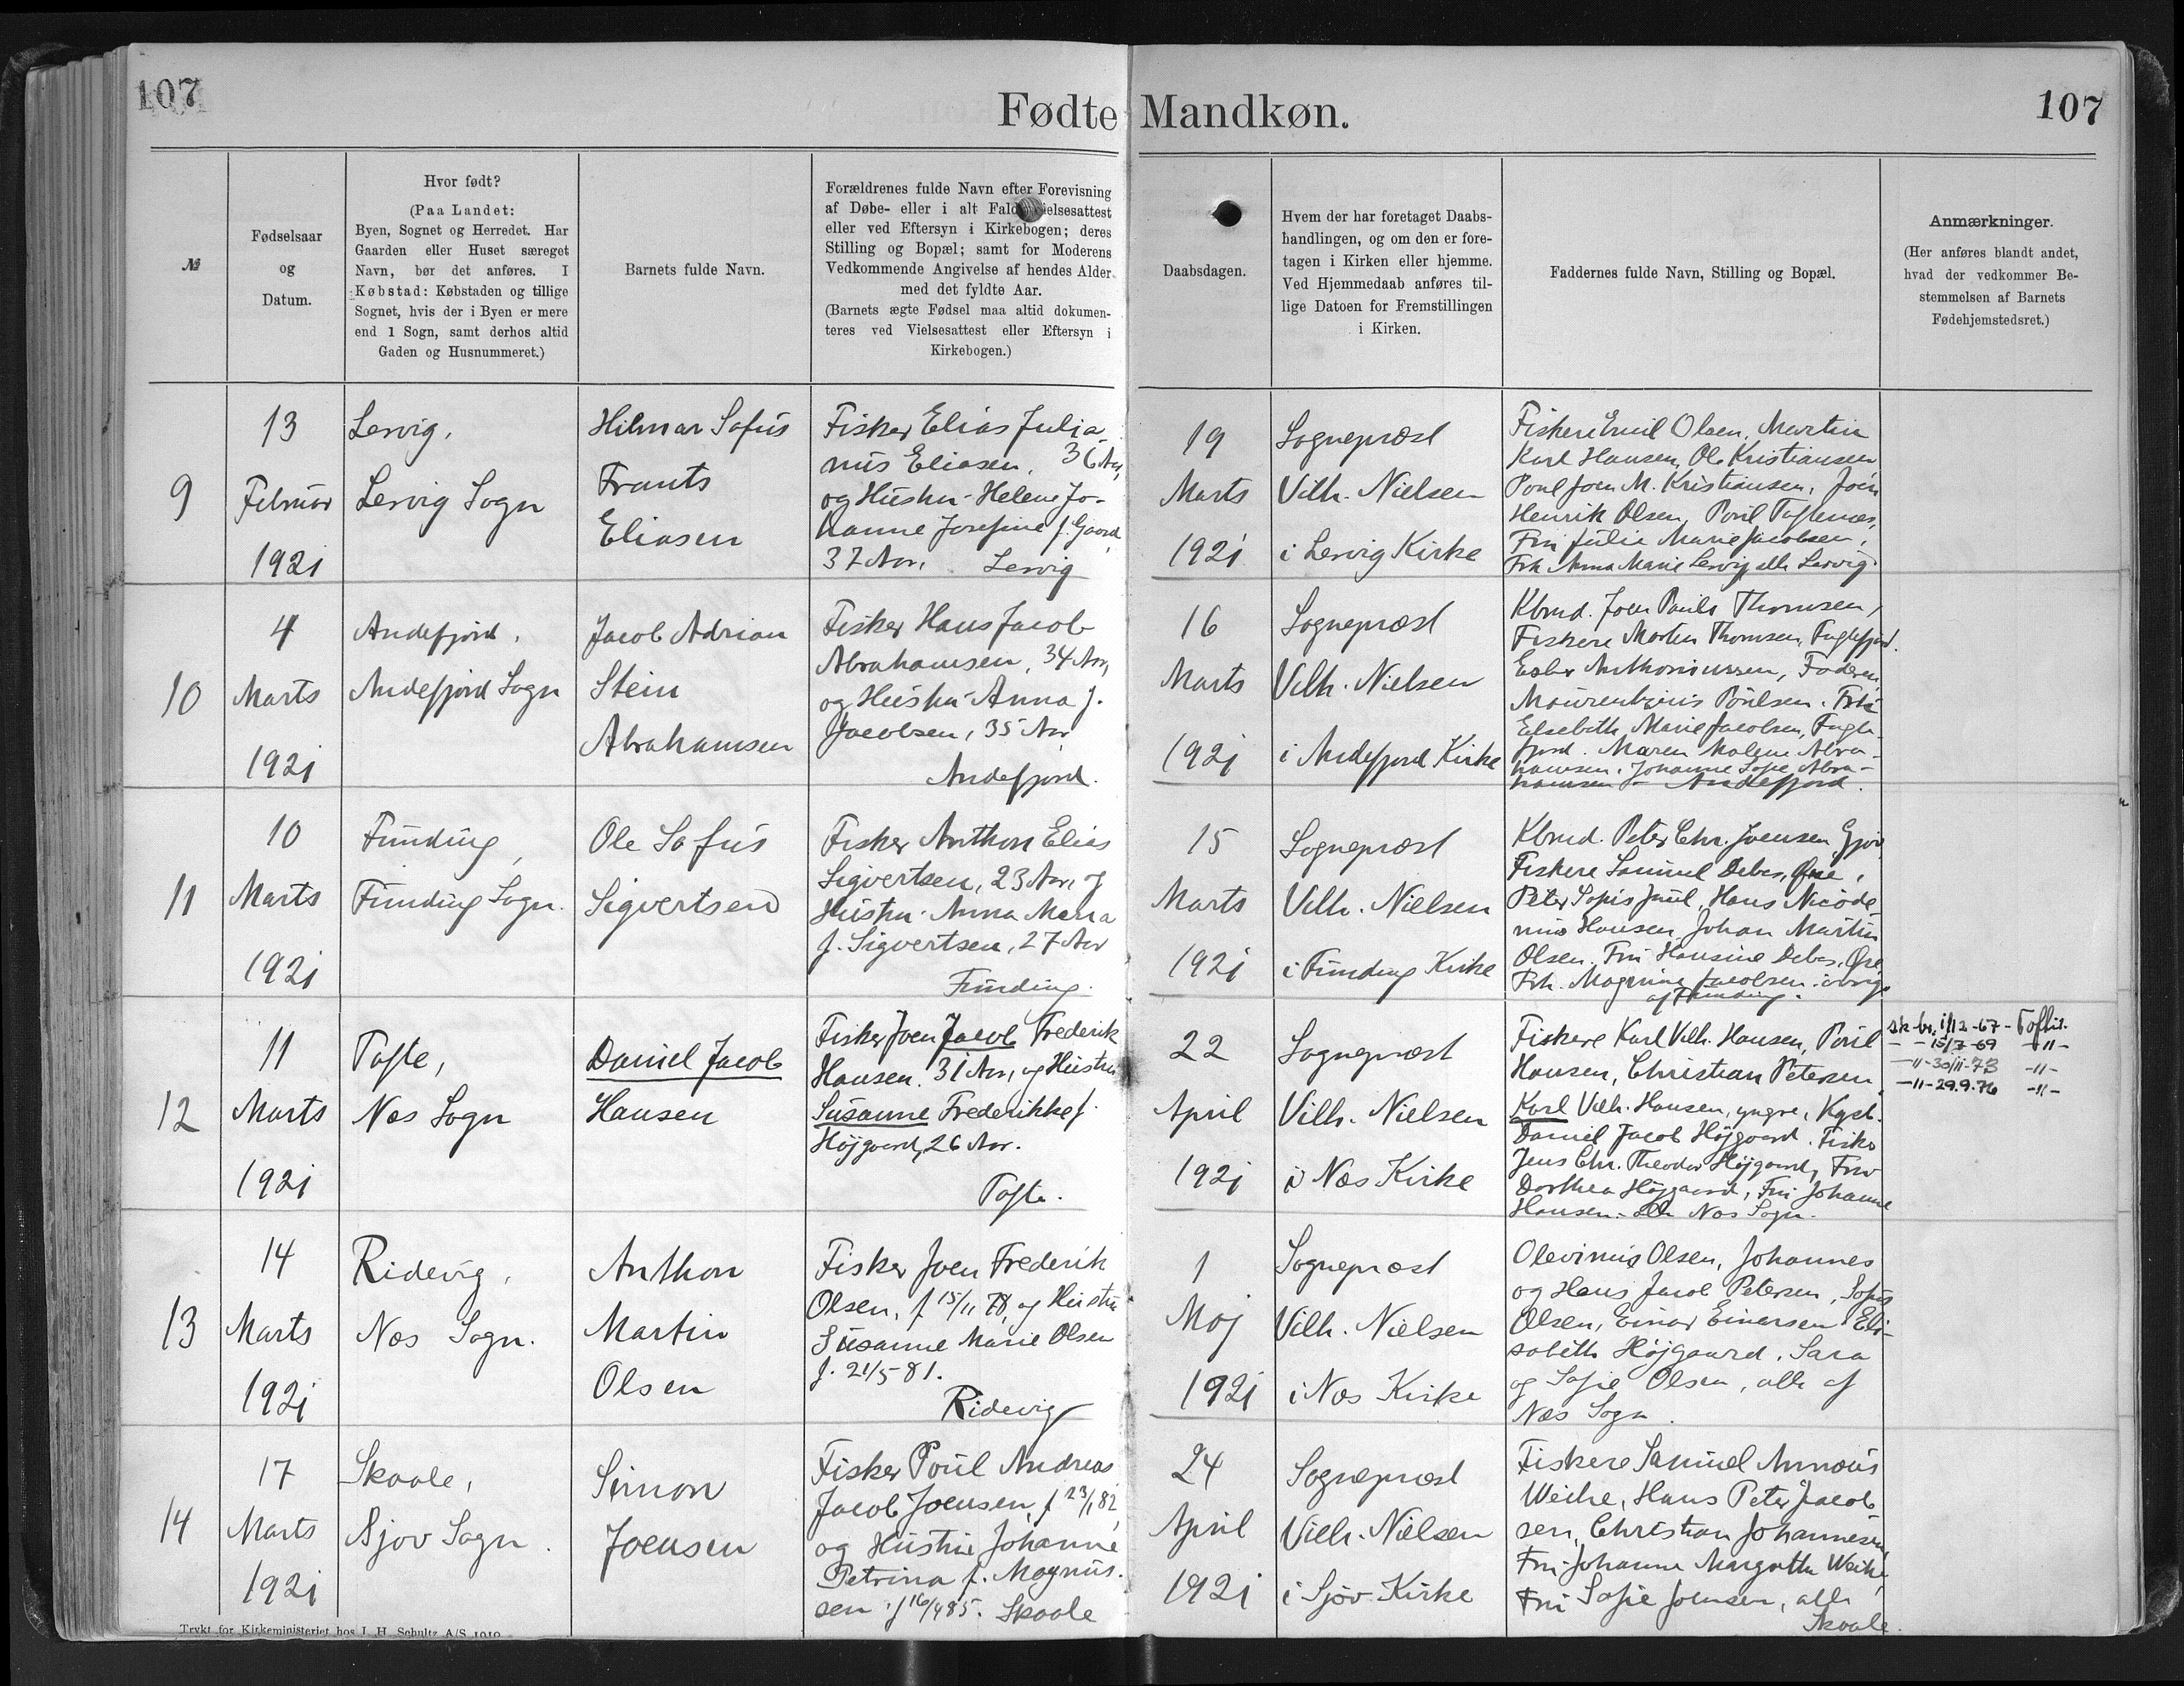 107
Fødte Mandkøn.
107
№
Fødselsaar
og
Datum.
Hvor født?
(Paa Landet:
Byen, Sognet og Herredet. Har
Gaarden eller Huset særeget
Navn, bør det anføres. I
Købstad: Købstaden og tillige
Sognet, hvis der i Byen er mere
end 1 Sogn, samt derhos altid
Gaden og Husnummeret.)
Barnets fulde Navn.
Forældrenes fulde Navn efter Forevisning
af Døbe- eller i alt Fald Vielsesattest
eller ved Eftersyn i Kirkebogen; deres
Stilling og Bopæl; samt for Moderens
Vedkommende Angivelse af hendes Alder
med det fyldte Aar.
(Barnets ægte Fødsel maa altid dokumen-
teres ved Vielsesattest eller Eftersyn i
Kirkebogen.)
Daabsdagen.
Hvem der har foretaget Daabs-
handlingen, og om den er fore-
tagen i Kirken eller hjemme.
Ved Hjemmedaab anføres til-
lige Datoen for Fremstillingen
i Kirken.
Faddernes fulde Navn, Stilling og Bopæl.
Anmærkninger.
(Her anføres blandt andet,
hvad der vedkommer Be-
stemmelsen af Barnets
Fødehjemstedsret.)
9
13
Februar
1921
Lervig,
Lervig Sogn
Hilmar Sofus
Frants
Eliasen
Fisker Elias Julia-
nus Eliasen, 36 Aar,
og Hustru Helene Jo-
hanne Josefine f. Gaard,
37 Aar, Lervig
19
Marts
1921
Sognepræst
Vilh. Nielsen
i Lervig Kirke
Fiskere Emil Olsen, Martin
Karl Hansen, Ole Kristiansen
Poul Joen M. Kristiansen, Joen
Henrik Olsen, Poul Toftenæs,
Fru Julie Marie Jacobsen,
Frk Anna Marie Lervig alle Lervig
10
4
Marts
1921
Andefjord,
Andefjord Sogn
Jacob Adrian
Stein
Abrahamsen
Fisker Hans Jacob
Abrahamsen, 34 Aar,
og Hustru Anna f.
Jacobsen, 35 Aar
Andefjord.
16
Marts
1921
Sognepræst
Vilh. Nielsen
i Andefjord Kirke
Kbmd. Joen Pauli Thomsen,
Fiskere Morten Thomsen, Fuglefjord.
Anthoniussen, Faderen,
Poulsen. Frk
Elsebeth Marie Jacobsen, Fugle-
fjord. Maren Malene Abra-
hamsen, Johanne Sofie Abra-
hamsen - Andefjord.
11
10
Marts
1921
Funding,
Funding Sogn.
Ole Sofus
Sigvertsen
Fisker Anthon Elias
Sigvertsen, 23 Aar, og
Hustru Anna Maria
f. Sigvertsen, 27 Aar
Funding.
15
Marts
1921
Sognepræst
Vilh. Nielsen
i Funding Kirke
Kbmd. Peter Chr. Joensen, Gjov,
Fiskere Samuel Debes,
Peter Sofus Juul, Hans Nicode-
mus Hansen, Johan Martin
Olsen. Fru Hansine Debes,
Frk. Magnina Jacobsen, øvrige
af Funding.
12
11
Marts
1921
Tofte,
Næs Sogn
Daniel Jacob
Hansen
Fisker Joen Jacob Frederik
Hansen. 31 Aar, og Hustru
Susanne Frederikke f.
Højgaard, 26 Aar.
Tofte.
22
April
1921
Sognepræst
Vilh. Nielsen
i Næs Kirke
Fiskere Karl Vilh. Hansen, Poul
Hansen, Christian Petersen,
Karl Vilh. Hansen, yngre,
Daniel Jacob Højgaard. Fisker
Jens Chr. Theodor Højgaard, Fru
Dorthea Højgaard, Fru Johanne
Hansen - alle Næs Sogn.
sk. br. 1/12-67 - Toftir.
- - 15/7-69 -11-
-11- 30/11-73 -11-
-11- 29.9.76 -11-
13
14
Marts
1921
Ridevig,
Næs Sogn.
Anthon
Martin
Olsen
Fisker Joen Frederik
Olsen, f 15/11 78, og Hustru
Susanne Marie Olsen
f. 21/5-81.
Ridevig
1
Maj
1921
Sognepræst
Vilh. Nielsen
i Næs Kirke
Olevinus Olsen, Johannes
og Hans Jacob Petersen, Sofus
Olsen, Einar Einersen Eli-
sabeth Højgaard, Sara
og Sofie Olsen, alle af
Næs Sogn.
14
17
Marts
1921
Skaale,
Sjov Sogn.
Simon
Joensen
Fisker Poul Andreas
Jacob Joensen, f 23/1 82,
og Hustru Johanne
Petrina f. Magnus-
sen f 16/4 85. Skaale
24
April
1921
Sognepræst
Vilh. Nielsen
i Sjov Kirke
Fiskere Samuel
Weihe, Hans Peter Jacob-
sen, Christian Johannesen,
Fru Johanne Margrethe Weihe,
Fru Sofie Joensen, alle
Skaale.
Trykt for Kirkeministeriet hos J. H. Schultz A/S 1919